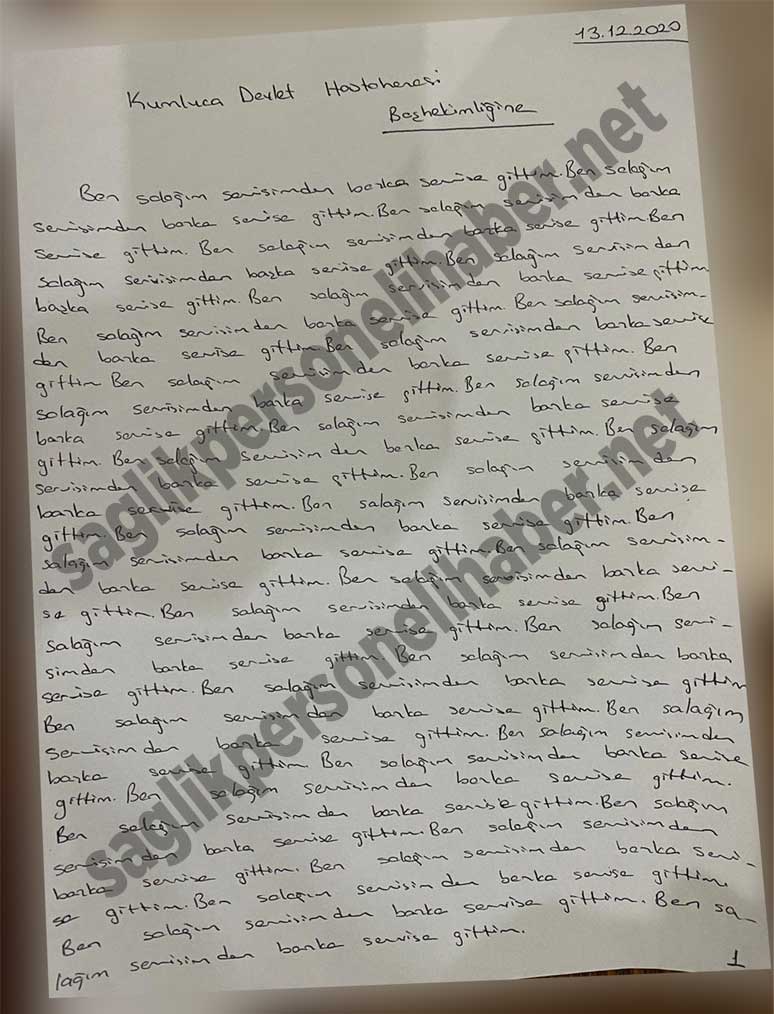 13.12.2020
Kumluca Devlet Hastahanesi
Başhekimliğine
Ben salağım servisimden başka servise gittim. Ben salağım
servisimden başka servise gittim. Ben salağım servisimden başka
servise gittim. Ben salağım servisimden başka servise gittim. Ben
salağım servisimden başka servise gittim. Ben salağım servisimden
başka servise gittim. Ben salağım servisimden başka servise gittim
Ben salağım servisimden başka servise gittim. Ben salağım servisim-
den başka servise gittim. Ben salağım servisimden başka servise
gittim Ben salağım servisimden başka servise gittim. Ben
salağım servisimden başka servise gittim. Ben salağım servisimden
başka servise gittim. Ben salağım servisimden başka servise
gittim. Ben salağım servisimden başka servise gittim. Ben salağım
servisimden başka servise gittim. Ben salağım servisimden
başka servise gittim. Ben salağım servisimden başka servise
gittim. Ben salağım servisimden başka servise gittim. Ben
salağım servisimden başka servise gittim. Ben salağım servisim-
den başka servise gittim. Ben salağım servisimden başka servi-
se gittim. Ben salağım servisimden başka servise gittim. Ben
salağım servisimden başka servise gittim. Ben salağım servi-
simden başka servise gittim. Ben salağım servisimden başka
servise gittim. Ben salağım servisimden başka servise gittim
Ben salağım servisimden başka servise gittim. Ben salağım
servisimden başka servise gittim. Ben salağım servisimden
başka servise gittim. Ben salağım servisimden başka servise
gittim. Ben salağım servisimden başka servise gittim.
Ben salağım servisimden başka servise gittim. Ben salağım
servisimden başka servise gittim. Ben salağım servisimden
başka servise gittim. Ben salağım servisimden başka servi-
se gittim. Ben salağım servisimden başka servise gittim.
Ben salağım servisimden başka servise gittim. Ben sa-
lağım servisimden başka servise gittim.
1
saglikpersonelihaber.net
saglikpersonelihaber.net